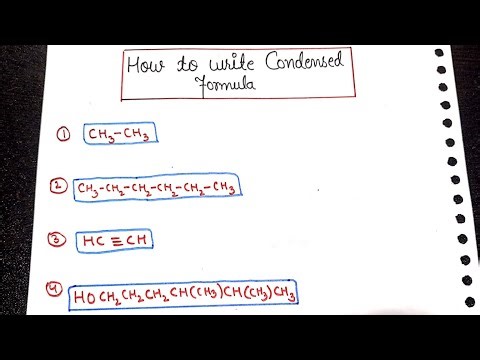 How to write Condensed
formula
① CH₃-CH₃
② CH₃-CH₂-CH₂-CH₂-CH₂-CH₃
③ HC≡CH
④ HOCH₂CH₂CH₂CH(CH₃)CH(CH₃)CH₃